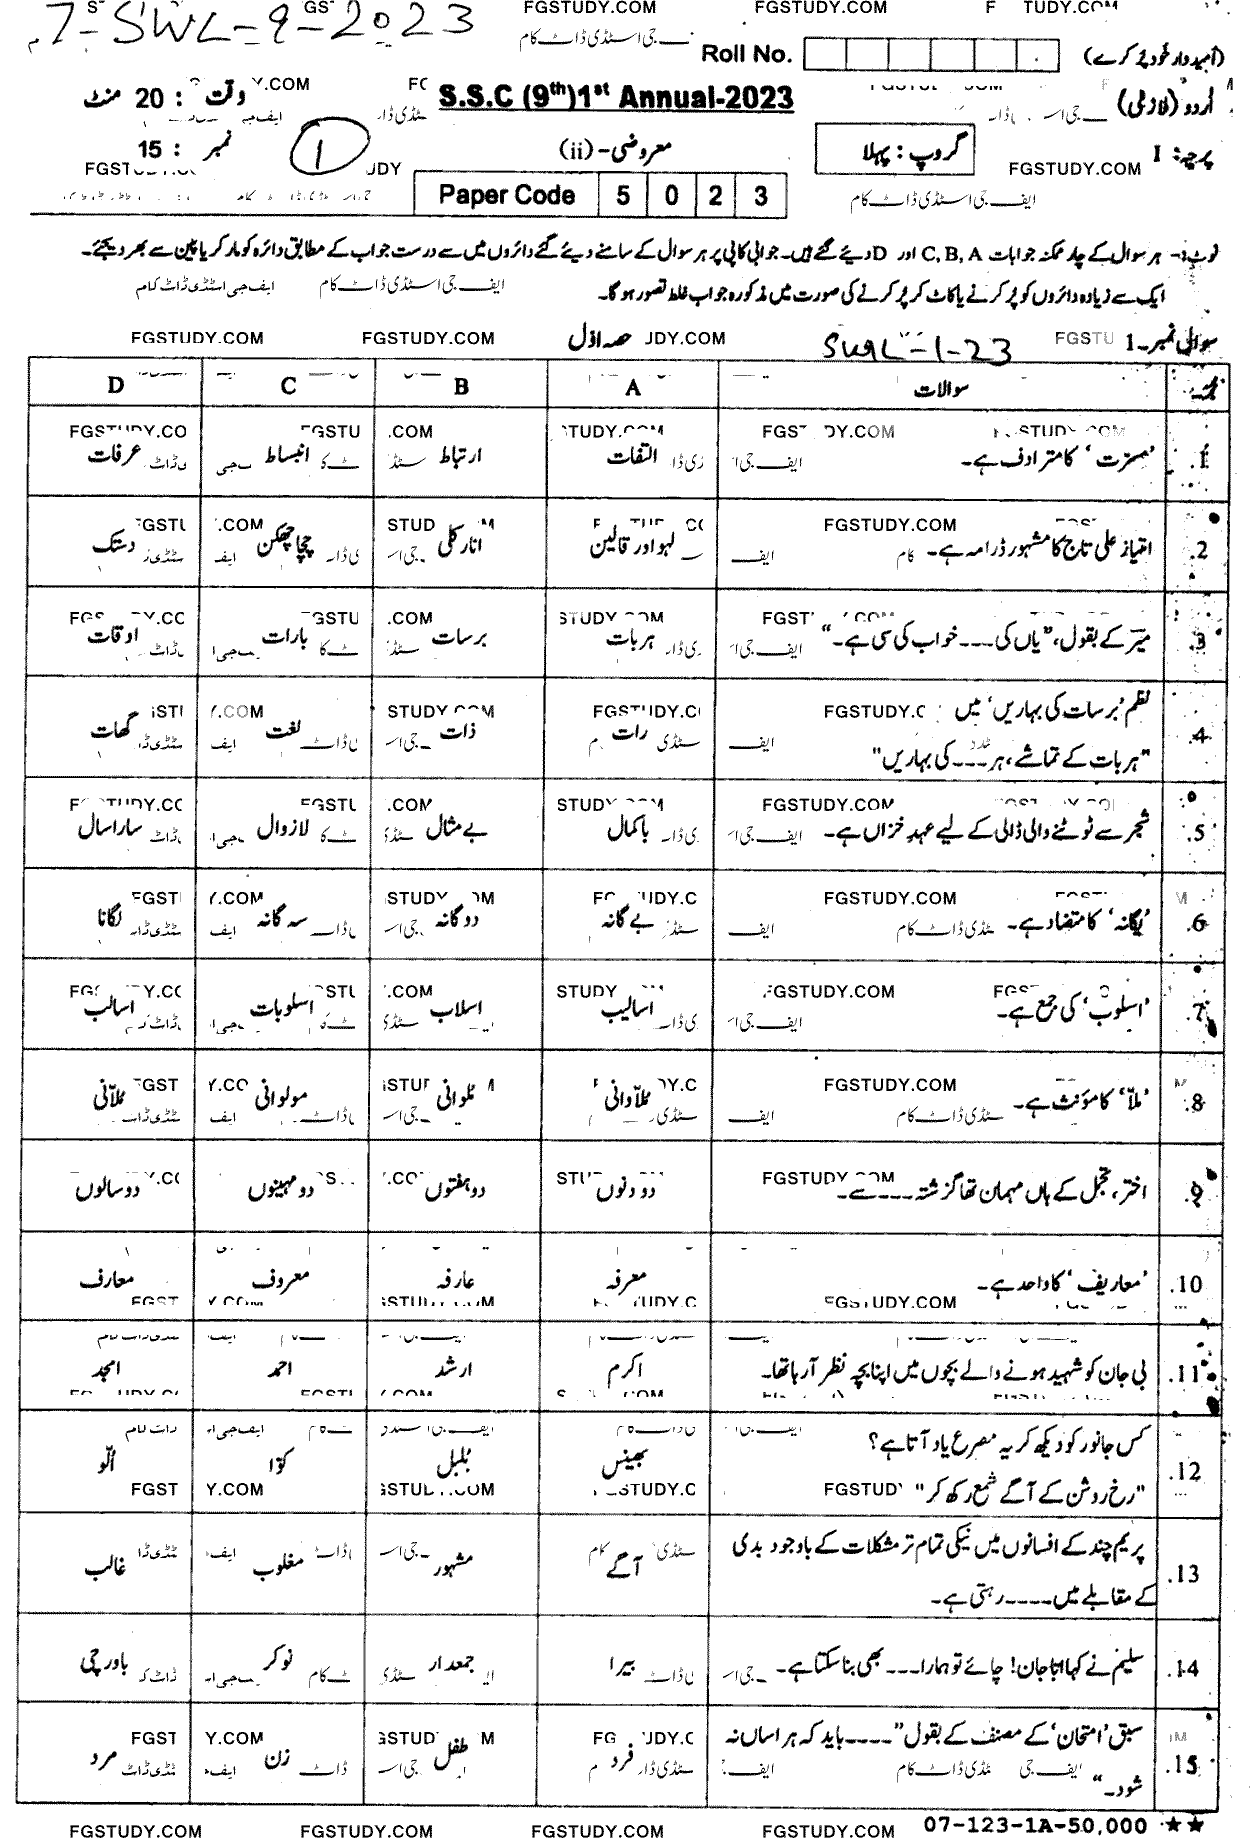 7-SWL-9-2023
FGSTUDY.COM FGSTUDY.COM
Roll No. (امیدوار خود پُر کرے)
اُردو (لازمی) S.S.C (9th)1st Annual-2023 وقت : 20 منٹ
پرچہ: I گروپ : پہلا معروضی-(ii) 1 نمبر : 15
FGSTUDY.COM
Paper Code 5 0 2 3
ایف جی اسٹڈی ڈاٹ کام
نوٹ:- ہر سوال کے چار ممکنہ جوابات C, B, A اور D دیئے گئے ہیں۔ جوابی کاپی پر ہر سوال کے سامنے دیئے گئے دائروں میں سے درست جواب کے مطابق دائرہ کو مارکر یا پین سے بھر دیجئے۔
ایک سے زیادہ دائروں کو پُر کرنے یا کاٹ کر پُر کرنے کی صورت میں مذکورہ جواب غلط تصور ہو گا۔
ایف جی اسٹڈی ڈاٹ کام ایف جی اسٹڈی ڈاٹ کام
سوال نمبر-1 SWL-1-23 حصہ اوّل FGSTUDY.COM FGSTUDY.COM
سوالات A B C D
1. 'مسرّت' کا مترادف ہے۔ التفات ارتباط انبساط عرفات
2. امتیاز علی تاج کا مشہور ڈرامہ ہے۔ لہو اور قالین انار کلی چچا چھکن دستک
3. میرؔ کے بقول، "یاں کی ---- خواب کی سی ہے۔" ہربات برسات بارات اوقات
4. نظم 'برسات کی بہاریں' میں
"ہر بات کے تماشے، ہر ---- کی بہاریں" رات ذات لغت گھات
5. شجر سے ٹوٹنے والی ڈالی کے لیے عہدِ خزاں ہے۔ باکمال بے مثال لازوال سارا سال
6. 'یگانہ' کا متضاد ہے۔ بے گانہ دوگانہ سہ گانہ لگانا
7. 'اسلوب' کی جمع ہے۔ اسالیب اسلاب اسلوبات اسالب
8. 'ملّا' کا مؤنث ہے۔ مُلّاوانی مُلوانی مولوانی مُلّانی
9. اختر، تجمل کے ہاں مہمان تھا گزشتہ ---- سے۔ دو دنوں دو ہفتوں دو مہینوں دو سالوں
10. 'معاریف' کا واحد ہے۔ معرفہ عارفہ معروف معارف
11. بی جان کو شہید ہونے والے بچوں میں اپنا بچہ نظر آ رہا تھا۔ اکرم ارشد احمد امجد
12. کس جانور کو دیکھ کر یہ مصرع یاد آتا ہے؟
"رخِ روشن کے آگے شمع رکھ کر" بھینس بُلبل کوّا اُلّو
13. پریم چند کے افسانوں میں نیکی تمام تر مشکلات کے باوجود بدی
کے مقابلے میں ---- رہتی ہے۔ آگے مشہور مغلوب غالب
14. سلیم نے کہا ابا جان! چائے تو ہمارا ---- بھی بنا سکتا ہے۔ بیرا جمعدار نوکر باورچی
15. سبق 'امتحان' کے مصنف کے بقول "---- باید کہ ہراساں نہ
شود۔" فرد طفل زن مرد
07-123-1A-50,000 ★★
FGSTUDY.COM FGSTUDY.COM FGSTUDY.COM FGSTUDY.COM